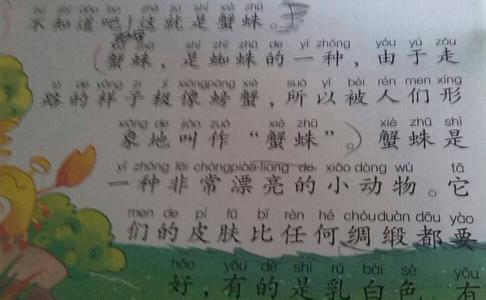 bù zhī dào ba zhè jiù shì xiè zhū
不知道吧！这就是蟹蛛。
zhū shì zhī zhū de yì zhǒng yóu yú zǒu
（蟹蛛，是蜘蛛的一种，由于走
lù de yàng zi jí xiàng páng xiè suǒ yǐ bèi rén men xíng
路的样子极像螃蟹，所以被人们形
xiàng de jiào zuò xiè zhū xiè zhū shì
象地叫作“蟹蛛”。）蟹蛛是
yì zhǒng fēi cháng piào liang de xiǎo dòng wù tā
一种非常漂亮的小动物。它
men de pí fū bǐ rèn hé chóu duàn dōu yào
们的皮肤比任何绸缎都要
hǎo yǒu de shì rǔ bái sè yǒu
好，有的是乳白色，有